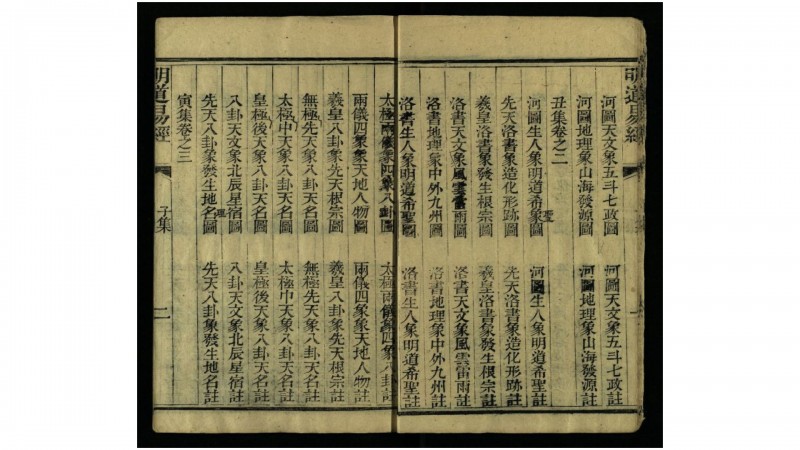 明道易經
河圖天文象五斗七政圖 河圖天文象五斗七政註
河圖地理象山海發源圖 河圖地理象山海發源註
丑集卷之二
河圖生人象明道希聖圖 河圖生人象明道希聖註
先天洛書象造化形跡圖 先天洛書象造化形跡註
羲皇洛書象發生根宗圖 羲皇洛書象發生根宗註
洛書天文象風雲雷雨圖 洛書天文象風雲雷雨註
洛書地理象中外九州圖 洛書地理象中外九州註
洛書生人象明道希聖圖 洛書生人象明道希聖註
太極兩儀象四象八卦圖 太極兩儀象四象八卦註
兩儀四象象天地人物圖 兩儀四象象天地人物註
羲皇八卦象先天根宗圖 羲皇八卦象先天根宗註
無極先天象八卦天名圖 無極先天象八卦天名註
太極中天象八卦天名圖 太極中天象八卦天名註
皇極後天象八卦天名圖 皇極後天象八卦天名註
八卦天文象北辰星宿圖 八卦天文象北辰星宿註
先天八卦象發生地名圖 先天八卦象發生地名註
寅集卷之三
明道易經 子集 二